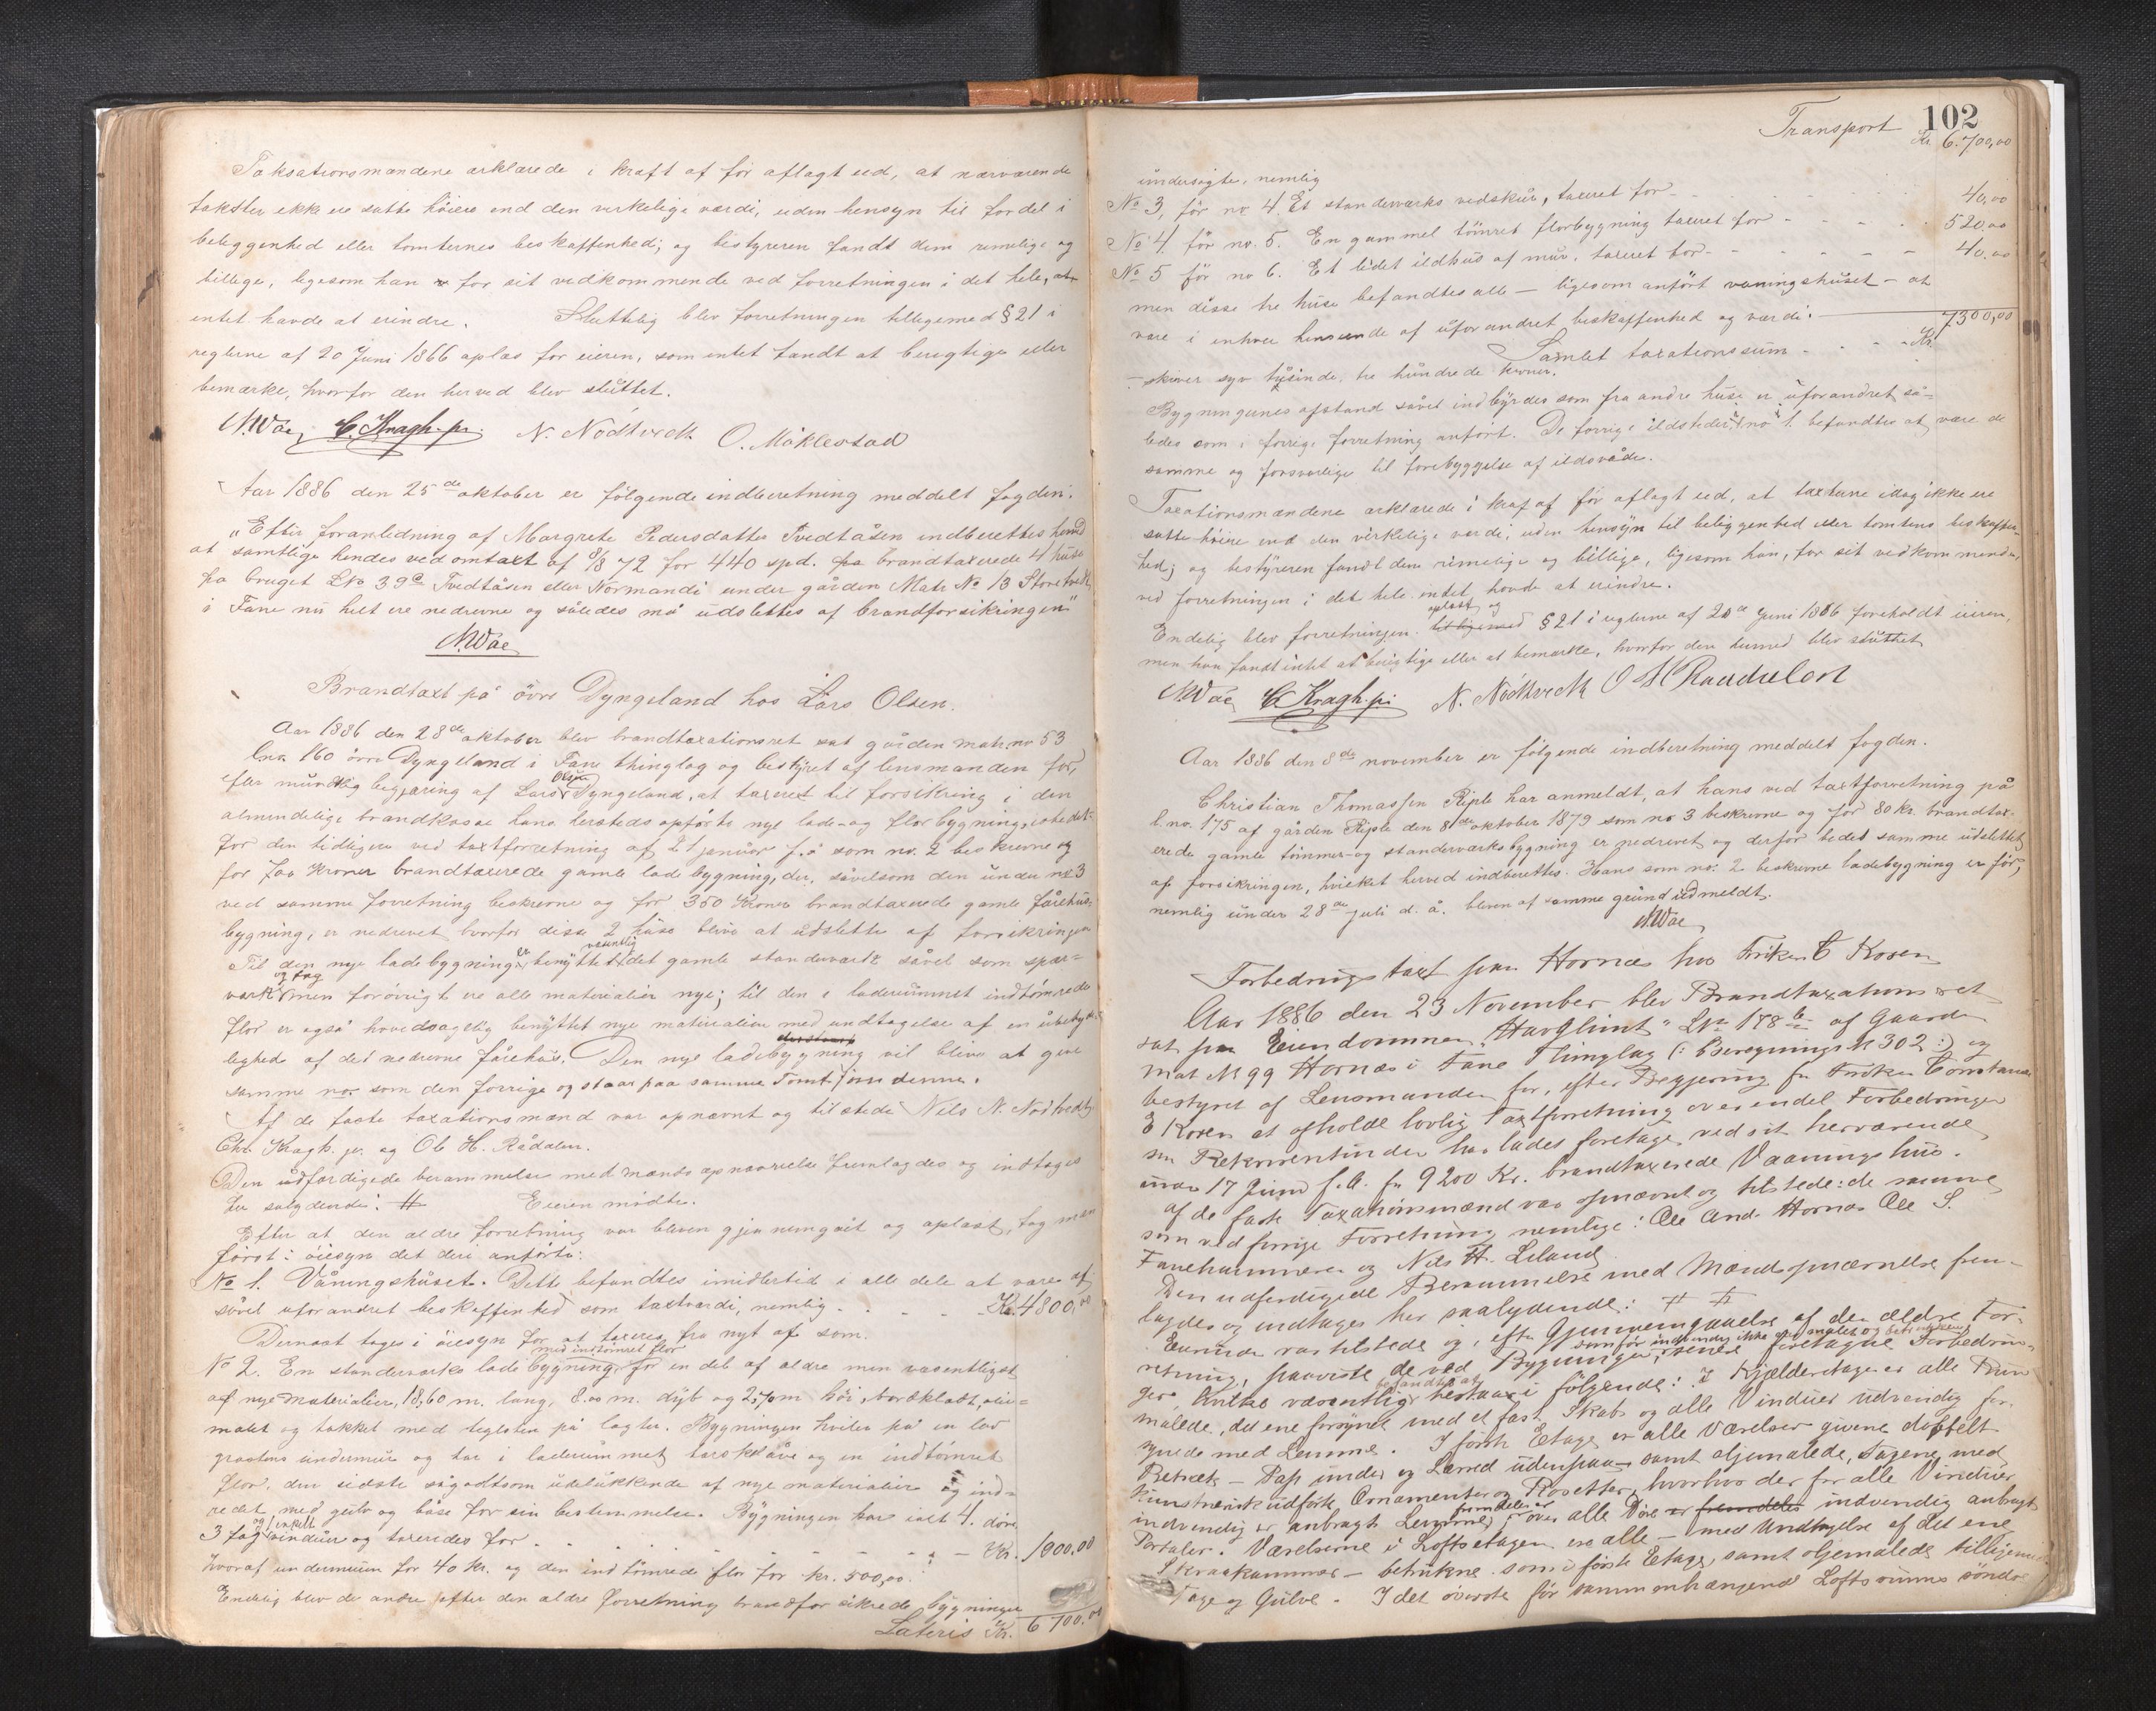 Taksationsmændene erklærede i kraft af før aflagt ed, at nærværende
takster ikke ere satte høiere end den virkelige værdi, uden hensyn til fordel i
beliggenhed eller tomternes beskaffenhed; og bestyreren fandt dem rimelige og
billige, ligesom han for sit vedkommende ved forretningen i det hele
intet havde at erindre. Sluttelig blev forretningen tilligemed § 21 i
reglerne af 20 Juni 1866 oplæst for eieren, som intet fandt at berigtige eller
bemærke, hvorfor den herved blev sluttet.
N. Wae C. Kragh. jr. N. Nødtvedt O. Møklestad
Aar 1886 den 25de oktober er følgende indberetning meddelt fogden:
"Efter foranledning af Margrete Pedersdatter Tvedtåsen indberettes herved
at samtlige hendes ved omtaxt af 8/8 72 for 440 spd. på brandtaxerede 4 huse
på bruget LNo 39a Tvedtåsen eller Normandi under gården Matr No 13 Storetvedt
i Fane nu helt ere nedrevne og således må udslettes af brandforsikringen"
N. Wae
Brandtaxt på övre Dyngeland hos Lars Olsen.
Aar 1886 den 28de oktober blev brandtaxationsret sat gården matr. no 53
lno 160 övre Dyngeland i Fane thinglag og bestyret af lensmanden for,
efter mundtlig begjæring af Lars Olsen Dyngeland, at taxeret til forsikring i den
almindelige brandkasse hans hersteds opførte nye lade- og florbygning, istedet
for den tidligere ved taxtforretning af 21 januar f. å som no. 2 beskrevne og
for 700 Kroner brandtaxerede gamle ladebygning, der, såvelsom den under no 3
ved samme forretning beskrevne og for 350 Kroner brandtaxerede gamle fårehus-
bygning, er nedrevet hvorfor disse 2 huse blive at udslette af forsikringen
Til den nye ladebygning er benyttet væsentlig det gamle standeværk såvel som spær-
værk og tag men forövrigt ere alle materialier nye; til den i laderummet indtömrede
flor er også hovedsagelig benyttet nye materialier med undtagelse af en ubetyde-
lighed af det nedrevne fårehus. Den nye ladebygning vil blive at give
samme no. som den forrige og staar paa samme Tomt som denne.
Af de faste taxationsmænd var opnævnt og tilstede Nils N. Nødtvedt,
Chr. Kragh. jr. og Ole H. Rådalen.
Den udfærdigede berammelse med mænds opnævnelse fremlagdes og indtages
her sålydende: # Eieren mödte.
Efter at den ældre forretning var bleven gjennemgået og oplæst, tog man
först i öiesyn det deri anförte:
No 1. Våningshuset. Dette befandtes imidlertid i alle dele at være af
såvel uforandret beskaffenhed som taxtværdi, nemlig - - - - Kr. 4800,00
Dernæst toges i öiesyn for at taxeres fra nyt af som.
No 2. En standeværks ladebygning med indtömret flor for en del af ældre men væsentligst
af nye materialier, 18,60 m. lang, 8.00 m. dyb og 2,70 m höi, bordklædt, olie-
malet og tækket med teglsten på lægter. Bygningen hviler på en lav
graastens undermur og har i laderummet tærskelåve og en indtömret
flor, den sidste sågodtsom udelukkende af nye materialier og ind-
redet med gulv og båse for sin bestemmelse. Bygningen har ialt 4. döre
3 fag og 1 enkelt vindue og taxeredes for - - - - - - Kr. 1900.00
hvoraf undermuren for 40 kr. og den indtömrede flor for kr. 500,00.
Endelig blev de andre efter den ældre forretning brandforsikrede bygninger
Lateris Kr. 6700.00
Transport 102
Kr. 6.700,00
undersøgte, nemlig
No 3, för no 4. Et standeværks vedskur, taxeret for - - - 40,00
No 4 för no. 5. En gammel tömret florbygning taxeret for - - - 520,00
No 5 för no 6. Et lidet ildhus af mur, taxeret for - - - 40,00
men disse tre huse befandtes alle - ligesom anfört våningshuset - at
være i enhver henseende af uforandret beskaffenhed og værdi.
Samlet taxationssum - - - Kr. 7300,00
- skriver syv tusinde, tre hundrede kroner.
Bygningernes afstand såvel indbyrdes som fra andre huse er uforandret så-
ledes som i forrige forretning anfört. De forrige ildsteder i no 1. befandtes at være de
samme og forsvarlige til forebyggelse af ildsvåde.
Taxationsmændene erklærede i kraf af för aflagt ed, at taxterne idag ikke ere
satte höiere end den virkelige værdi, uden hensyn til beliggenhed eller tomtens beskaffen-
hed; og bestyreren fandt dem rimelige og billige, ligesom han, for sit vedkommende,
ved forretningen i det hele intet havde at erindre.
Endelig blev forretningen oplæst og tilligemed § 21 i reglerne af 20de Juni 1866 foreholdt eieren,
men han fandt intet at berigtige eller at bemærke, hvorfor den hermed blev sluttet
N. Wae C. Kragh. jr. N. Nødtvedt O H Raudalen
Aar 1886 den 8de november er følgende indberetning meddelt fogden.
Christian Thomassen Riple har anmeldt, at hans ved taxtforretning på
l. no. 175 af gården Riple den 8de oktober 1879 som no 3 beskrevne og för 80 kr. brandtax-
erede gamle tömmer- og standeværksbygning er nedrevet og derfor bedes samme udslettet
af forsikringen, hvilket herved indberettes. Hans som no. 2 beskrevne ladebygning er för,
nemlig under 28de juli d. å. bleven af samme grund udmeldt.
N. Wae
Forbedringstaxt paa Hornæs hos Frøken C Koren
Aar 1886 den 23 November blev Brandtaxationsret
sat paa Eiendommen "Havglimt" LNo 178b af Gaarden
Mat. N 99 Hornæs i Fane Thinglag (: Beregnings N 302 :) og
bestyret af Lensmanden for, efter Begjæring fra Frøken Constance
E Koren at afholde lovlig Taxtforretning over endel Forbedringer
som Rekvirentinden har ladet foretage ved sit herværende
under 17 Juni f. A. for 9200 Kr. brandtaxerede Vaaningshus.
Af de faste Taxationsmænd var opnævnt og tilstede: de samme
som ved forrige Forretning nemlige: Ole And. Hornæs Ole S.
Fanehammeren og Nils H. Liland.
Den udfærdigede Berammelse med Mændsopnævnelse frem-
lagdes og indtages her saalydende: # #
Eierinden var tilstede og, efter Gjennemgaaelse af den ældre For-
retning, paaviste de ved Bygningen, som før indvendig ikke var malet og betrukken, senere foretagne Forbedrin-
ger, hvilke væsentlig befandtes at bestaa i følgende: I Kjælderetagen er alle Rum
malede, det ene forsynet med et fast Skab og alle Vinduer udvendig for-
synede med Lemme. I første Etage er alle Værelser givene dobbelt
Betræk - Pap under og Lærred udenpaa - samt oljemalede, Tagene med
kunstnerisk udførte Ornamenter og Rosetter, hvorhos der for alle Vinduer
indvendig er anbragt Lemme, fremdeles er over alle Døre er fremdeles indvendig anbragt
Portaler. Værelserne i Loftsetagen ere alle - med Undtagelse af det ene
Skraakammer - betrukne som i første Etage, samt oljemalede tilligemed
Tage og Gulve. I det øverste før sammenhængende Loftsrum søndre